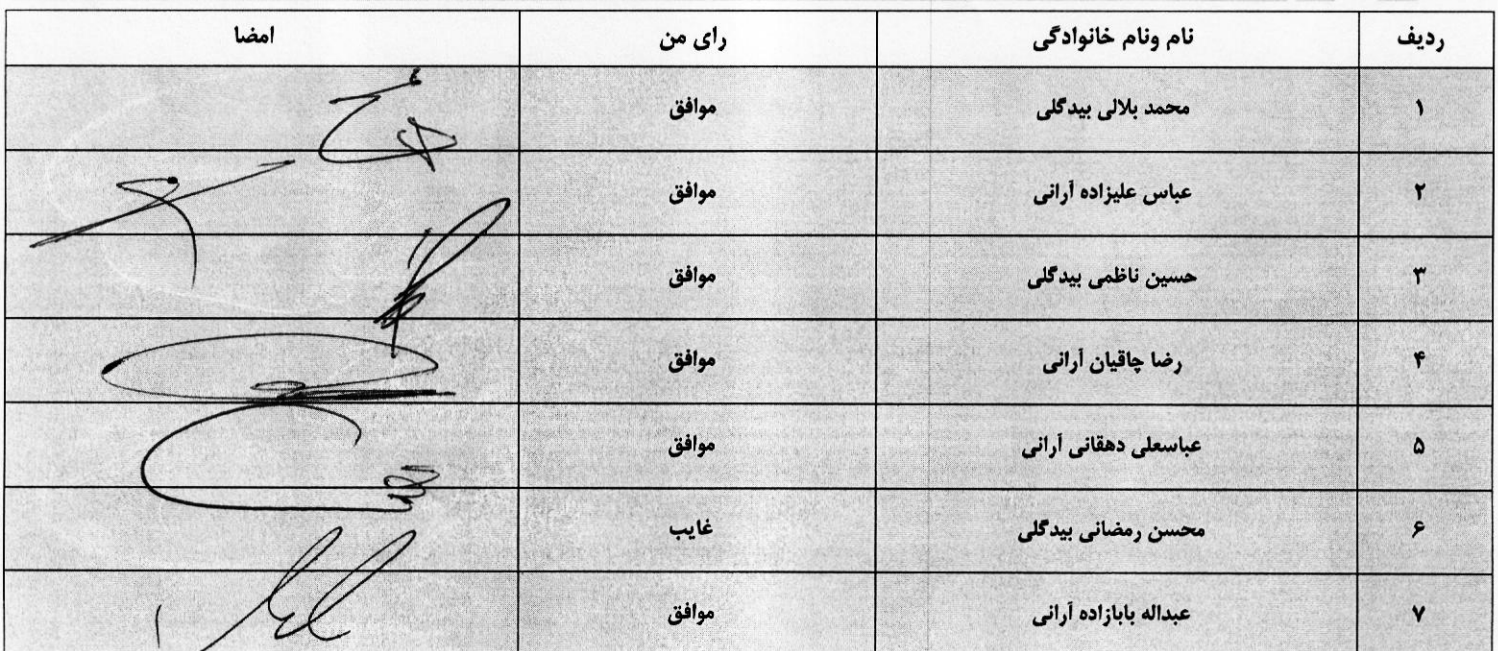 ردیف نام ونام خانوادگی رای من امضا
۱ محمد بلالی بیدگلی موافق
۲ عباس علیزاده آرانی موافق
۳ حسین ناظمی بیدگلی موافق
۴ رضا چاقیان آرانی موافق
۵ عباسعلی دهقانی آرانی موافق
۶ محسن رمضانی بیدگلی غایب
۷ عبداله بابازاده آرانی موافق